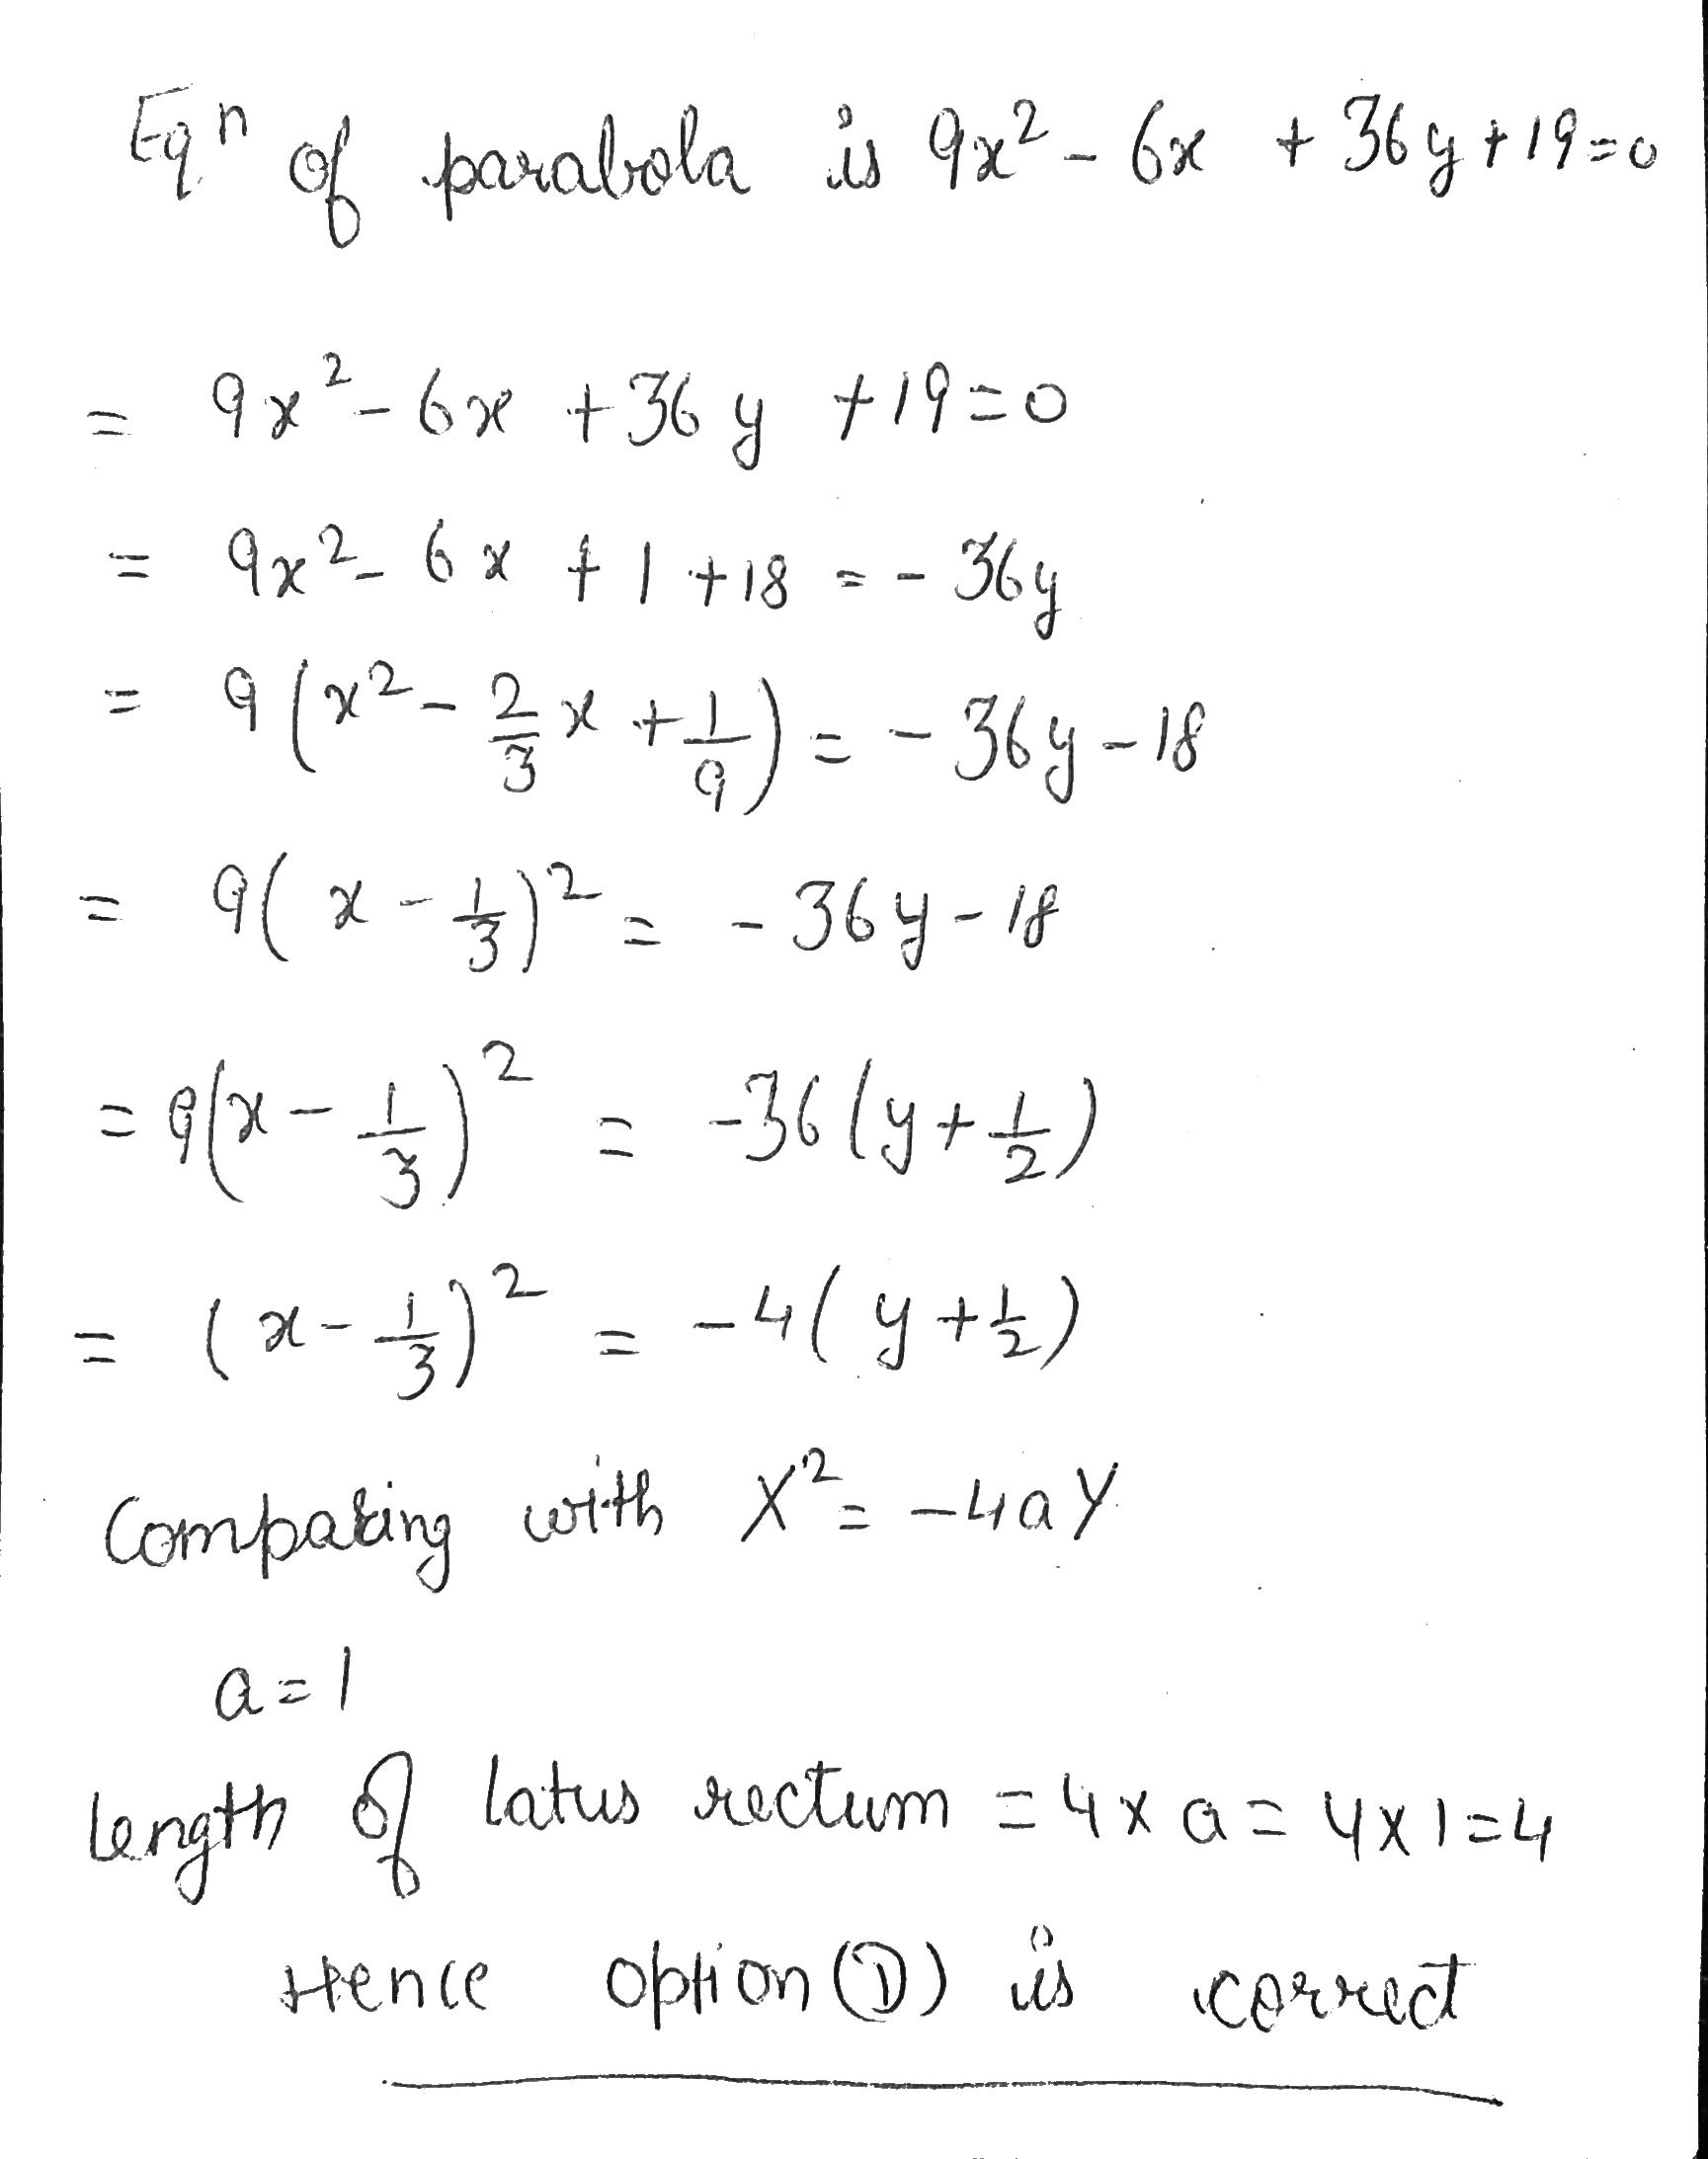 Eqⁿ of parabola is 9x² - 6x + 36y + 19 = 0
= 9x² - 6x + 36y + 19 = 0
= 9x² - 6x + 1 + 18 = - 36y
= 9(x² - 2/3 x + 1/9) = - 36y - 18
= 9(x - 1/3)² = - 36y - 18
= 9(x - 1/3)² = -36(y + 1/2)
= (x - 1/3)² = -4(y + 1/2)
Comparing with X² = -4aY
a = 1
Length of latus rectum = 4 x a = 4 x 1 = 4
Hence option (D) is correct